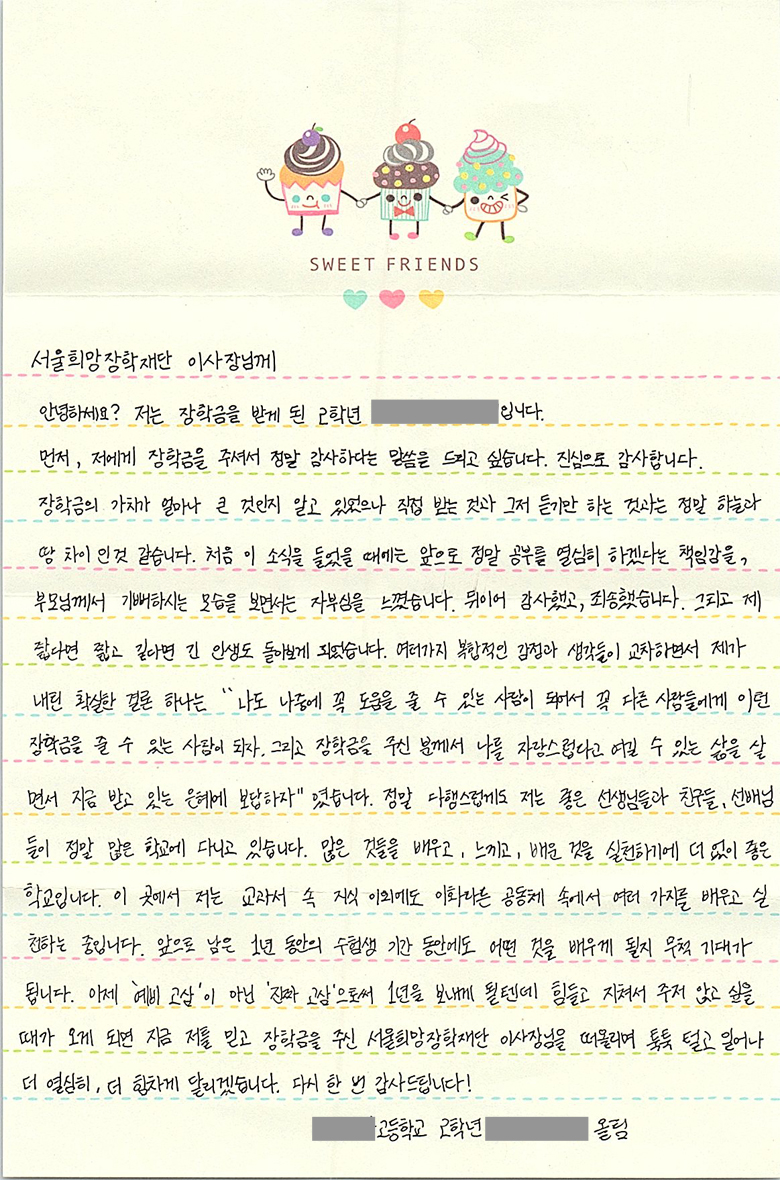 SWEET FRIENDS
서울희망장학재단 이사장님께
안녕하세요? 저는 장학금을 받게 된 2학년 입니다.
먼저, 저에게 장학금을 주셔서 정말 감사하다는 말씀을 드리고 싶습니다. 진심으로 감사합니다.
장학금의 가치가 얼마나 큰 것인지 알고 있었으나 직접 받는 것과 그저 듣기만 하는 것과는 정말 하늘과
땅 차이인것 같습니다. 처음 이 소식을 들었을 때에는 앞으로 정말 공부를 열심히 하겠다는 책임감을,
부모님께서 기뻐하시는 모습을 보면서는 자부심을 느꼈습니다. 뒤이어 감사했고, 죄송했습니다. 그리고 제
짧다면 짧고 길다면 긴 인생도 돌아보게 되었습니다. 여러가지 복합적인 감정과 생각들이 교차하면서 제가
내린 확실한 결론 하나는 “나도 나중에 꼭 도움을 줄 수 있는 사람이 되어서 꼭 다른 사람들에게 이런
장학금을 줄 수 있는 사람이 되자. 그리고 장학금을 주신 분께서 나를 자랑스럽다고 여길 수 있는 삶을 살
면서 지금 받고 있는 은혜에 보답하자" 였습니다. 정말 다행스럽게도 저는 좋은 선생님들과 친구들, 선배님
들이 정말 많은 학교에 다니고 있습니다. 많은 것들을 배우고, 느끼고, 배운 것을 실천하기에 더 없이 좋은
학교입니다. 이 곳에서 저는 교과서 속 지식 이외에도 이화라는 공동체 속에서 여러 가지를 배우고 실
천하는 중입니다. 앞으로 남은 1년 동안의 수험생 기간 동안에도 어떤 것을 배우게 될지 무척 기대가
됩니다. 이제 '예비 고삼'이 아닌 '진짜 고삼'으로써 1년을 보내게 될텐데 힘들고 지쳐서 주저 앉고 싶을
때가 오게 되면 지금 저를 믿고 장학금을 주신 서울희망장학재단 이사장님을 떠올리며 툭툭 털고 일어나
더 열심히, 더 힘차게 달리겠습니다. 다시 한 번 감사드립니다!
고등학교 2학년 올림